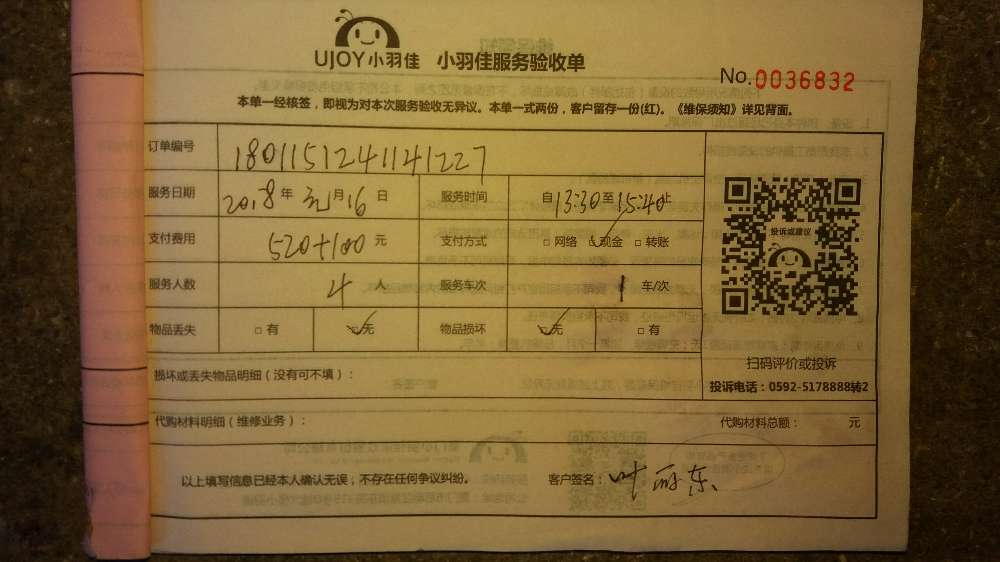 UJOY小羽佳 小羽佳服务验收单
No.0036832
本单一经核签，即视为对本次服务验收无异议。本单一式两份，客户留存一份(红)。《维保须知》详见背面。
订单编号 1801151241141227
服务日期 2018年元月16日 服务时间 自13:30至15:40止
支付费用 520+100元 支付方式 □网络 ☑现金 □转账
服务人数 4人 服务车次 1车/次
物品丢失 □有 ☑无 物品损坏 ☑无 □有
投诉或建议
扫码评价或投诉
投诉电话：0592-5178888转2
损坏或丢失物品明细（没有可不填）：
代购材料明细（维修业务）： 代购材料总额： 元
以上填写信息已经本人确认无误；不存在任何争议纠纷。 客户签名：叶丽东